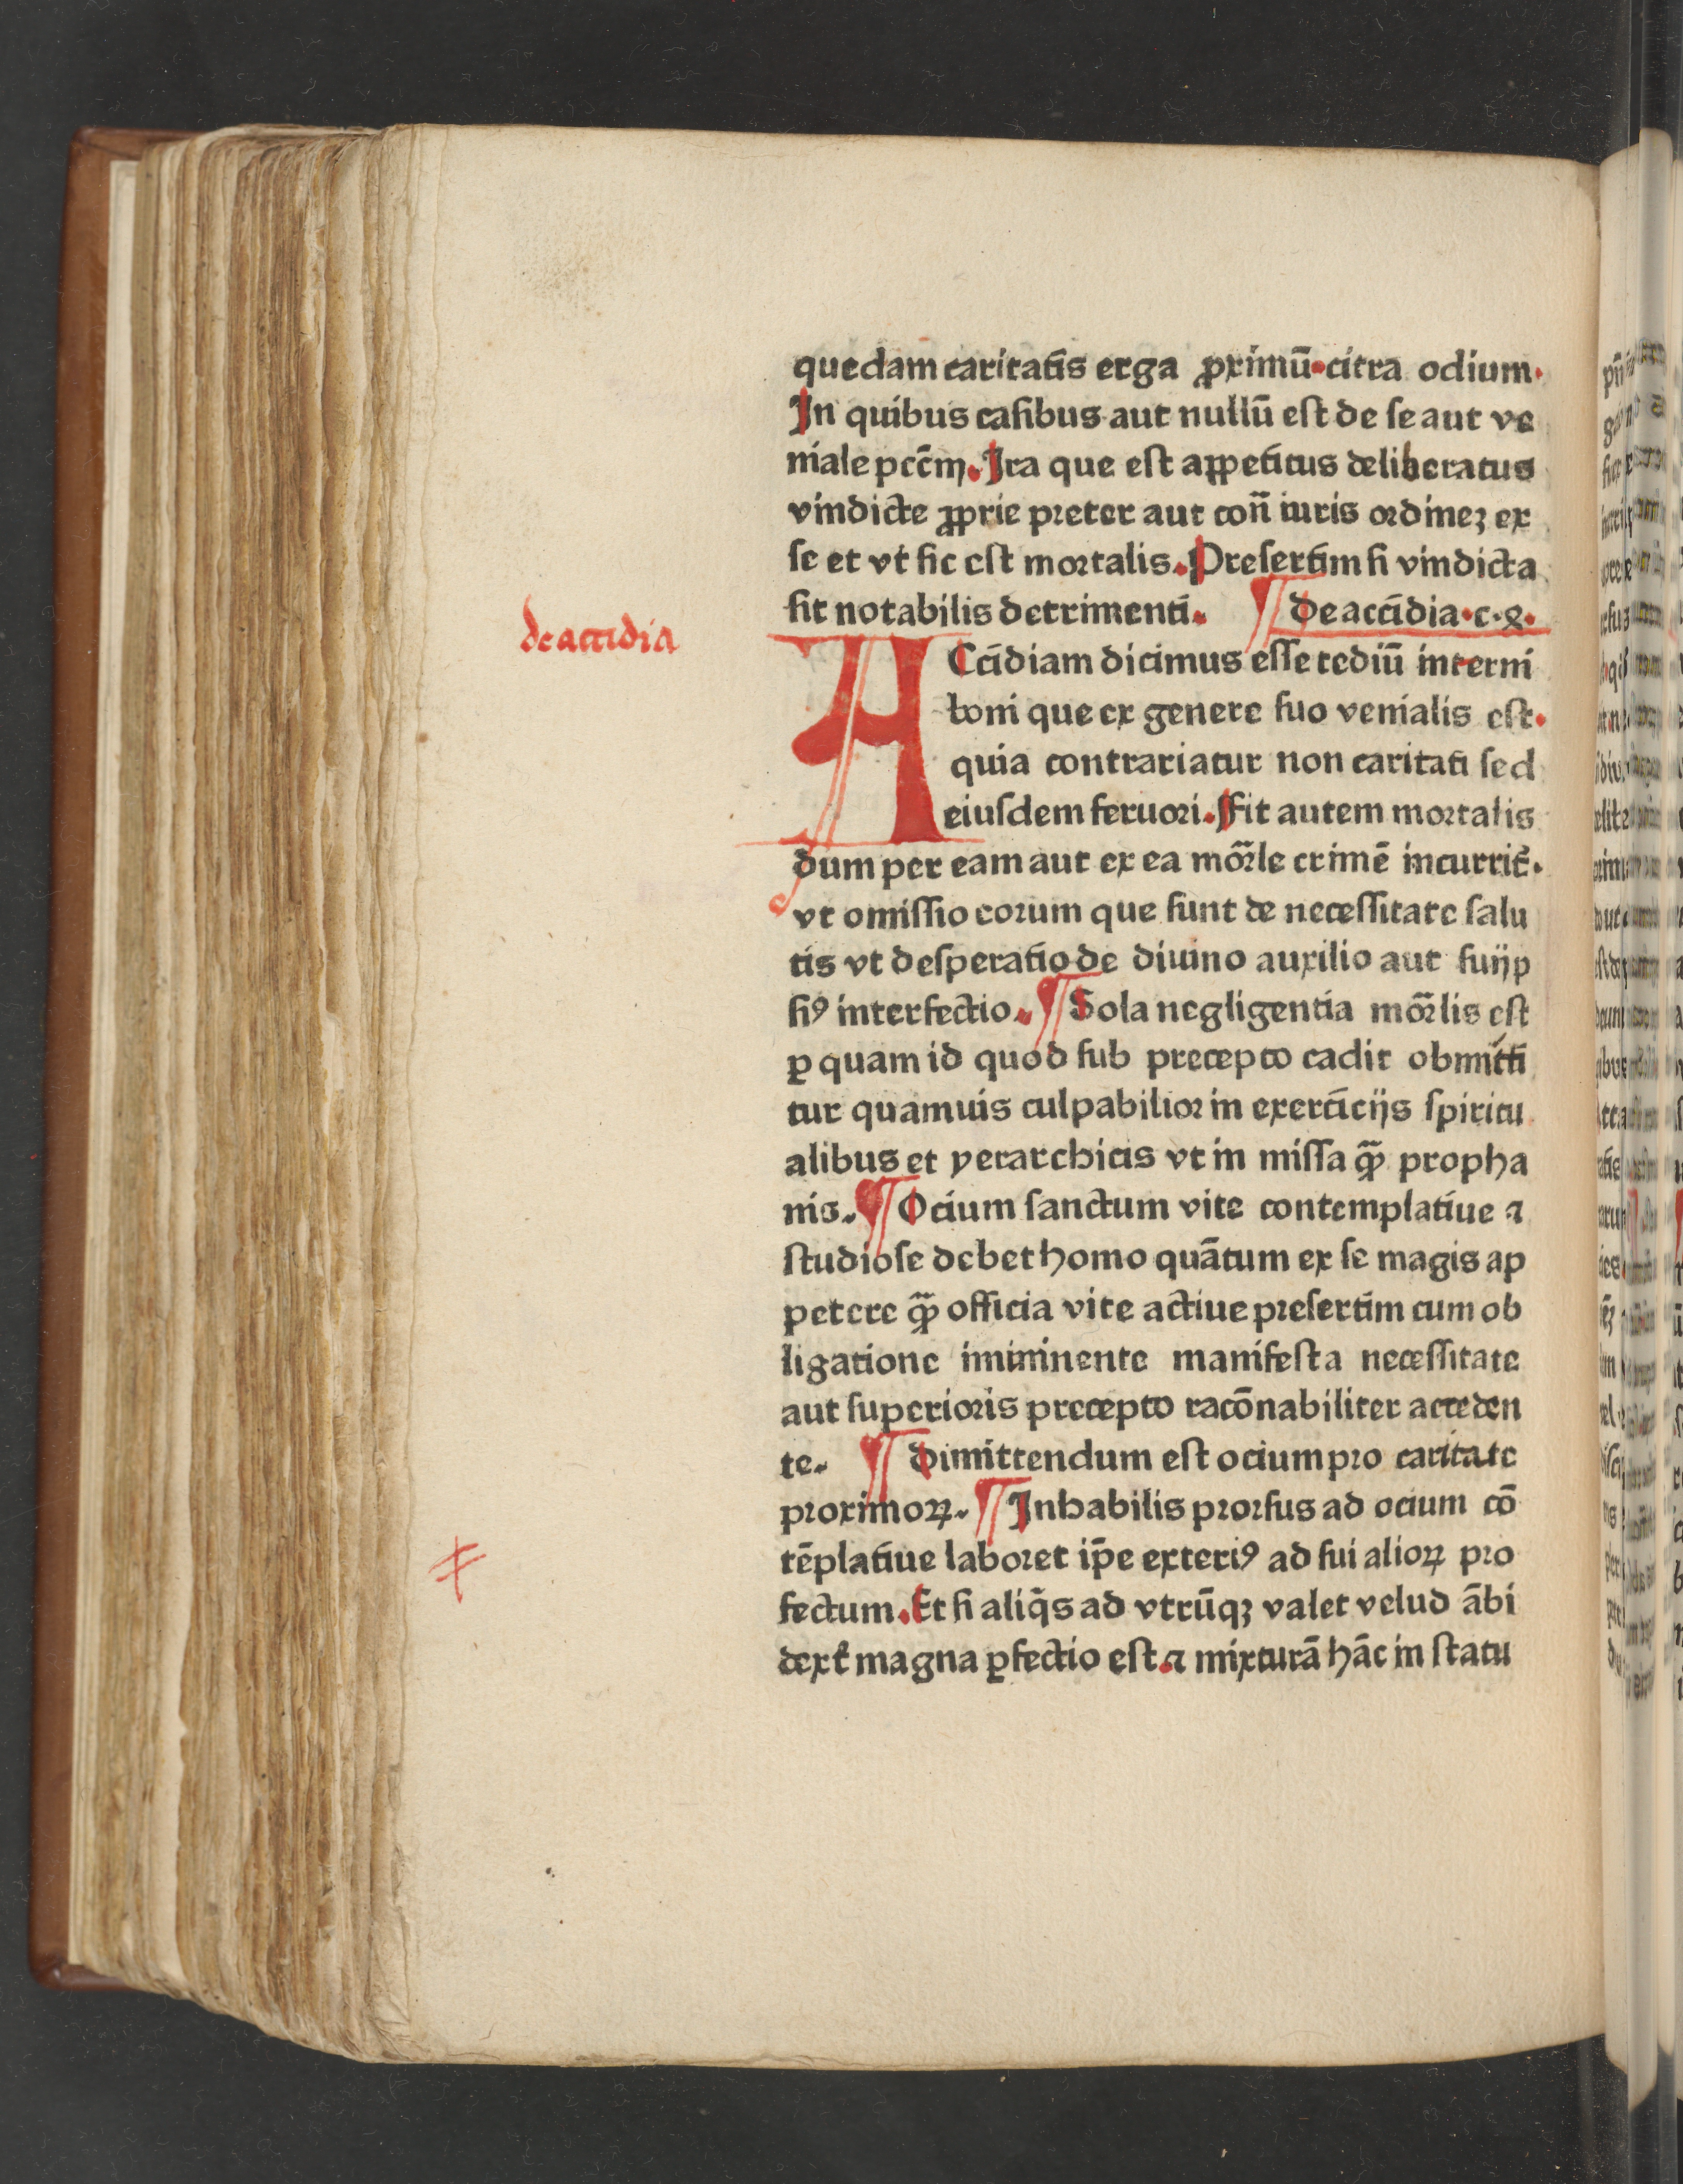 quedam caritatis erga ꝓximū. citra odium.
In quibus casibus aut nullū est de se aut ve
niale pccm̄. Ira que est appetitus deliberatus
vindicte ꝓprie preter aut con̄ iuris ordinez ex
se et vt sic est mortalis. Presertim si vindicta
sit notabilis detrimenti. ¶ de accidia. c. 8.
de accidia
ACcidiam dicimus esse tediū interni
boni que ex genere suo venialis est.
quia contrariatur non caritati sed
eiusdem feruori. Fit autem mortalis
dum per eam aut ex ea mor̄le crimē incurrit᷑.
vt omissio eorum que sunt de necessitate salu
tis vt desperatio de diuino auxilio aut suijp
siꝰ interfectio. ¶ Sola negligentia mor̄lis est
ꝑ quam id quod sub precepto cadit obmitti
tur quamuis culpabilior in exercicijs spiritu
alibus et yerarchicis vt in missa qᷓꝫ propha
nis. ¶ Ocium sanctum vite contemplatiue ⁊
studiose debet homo quātum ex se magis ap
petere qᷓꝫ officia vite actiue presertim cum ob
ligatione imminente manifesta necessitate
aut superioris precepto racōnabiliter acceden
te. ¶ dimittendum est ocium pro caritate
proximoꝝ. ¶ Inhabilis prorsus ad ocium cō
tēplatiue laboret ip̄e exteriꝰ ad sui alioꝝ pro
fectum. Et si aliq̄s ad vtrūqꝫ valet velud ābi
dext᷑ magna ꝑfectio est. ⁊ mixturā hāc in statu